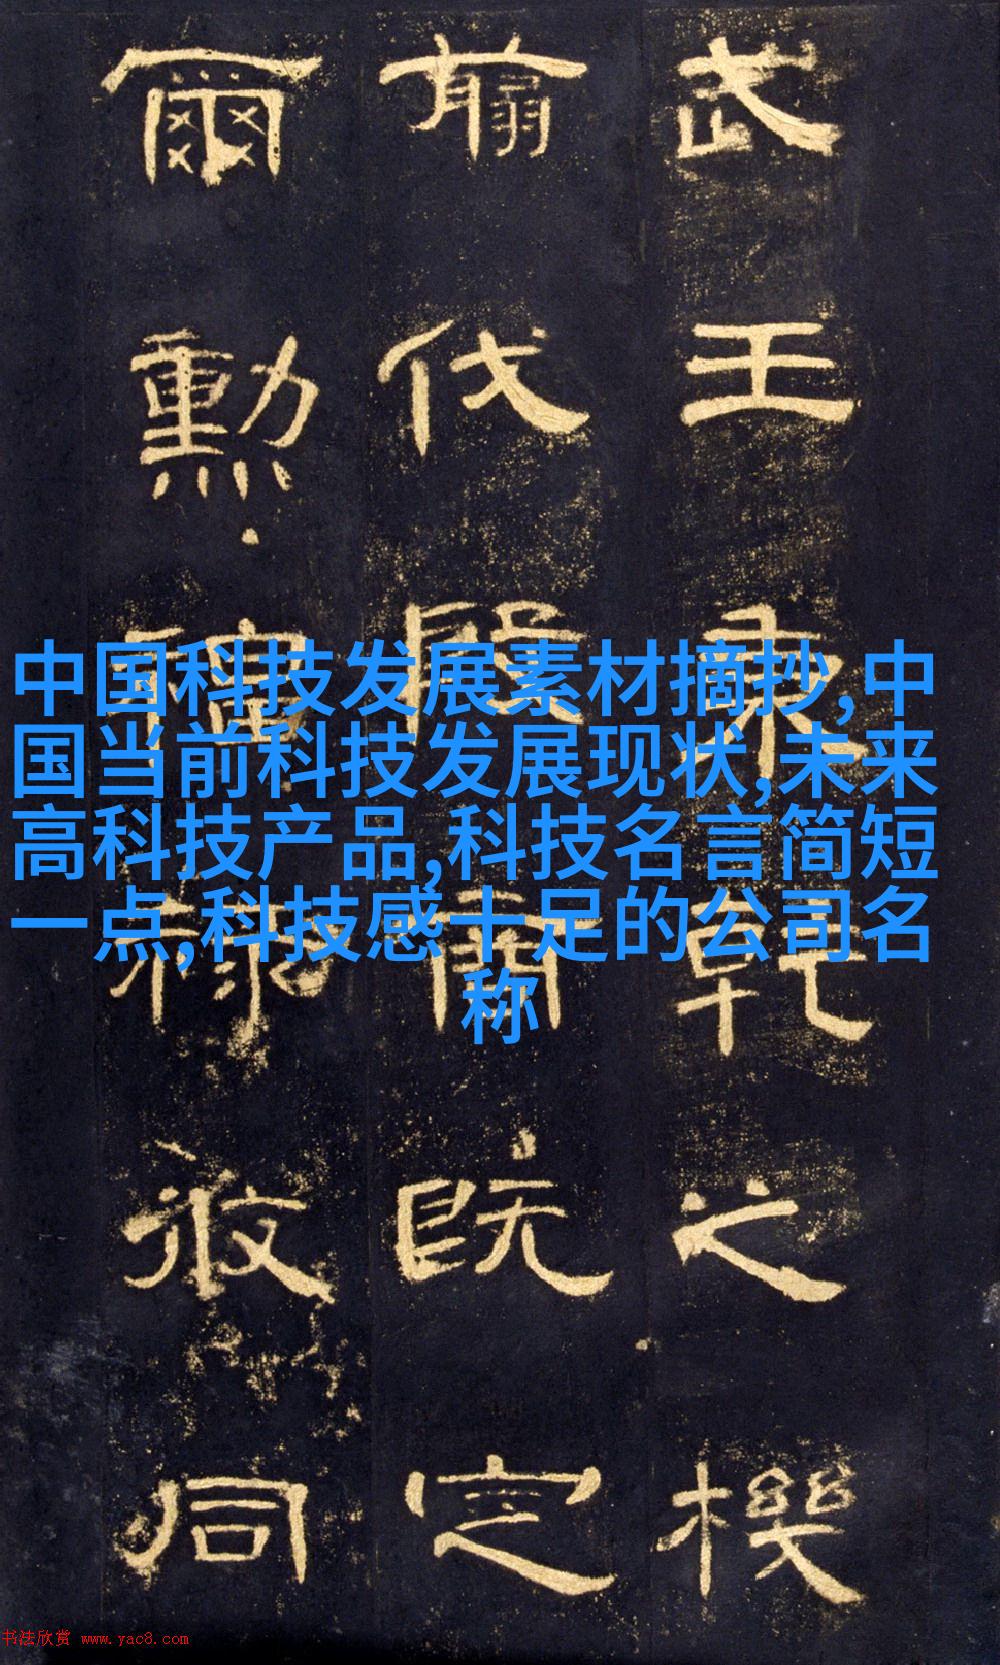 武王乘乾之機
翦伐殷商既定
爾勲福祿攸同
中国科技发展素材摘抄,中
国当前科技发展现状,未来
高科技产品,科技名言简短
一点,科技感十足的公司名
称
书法欣赏 www.yac8.com